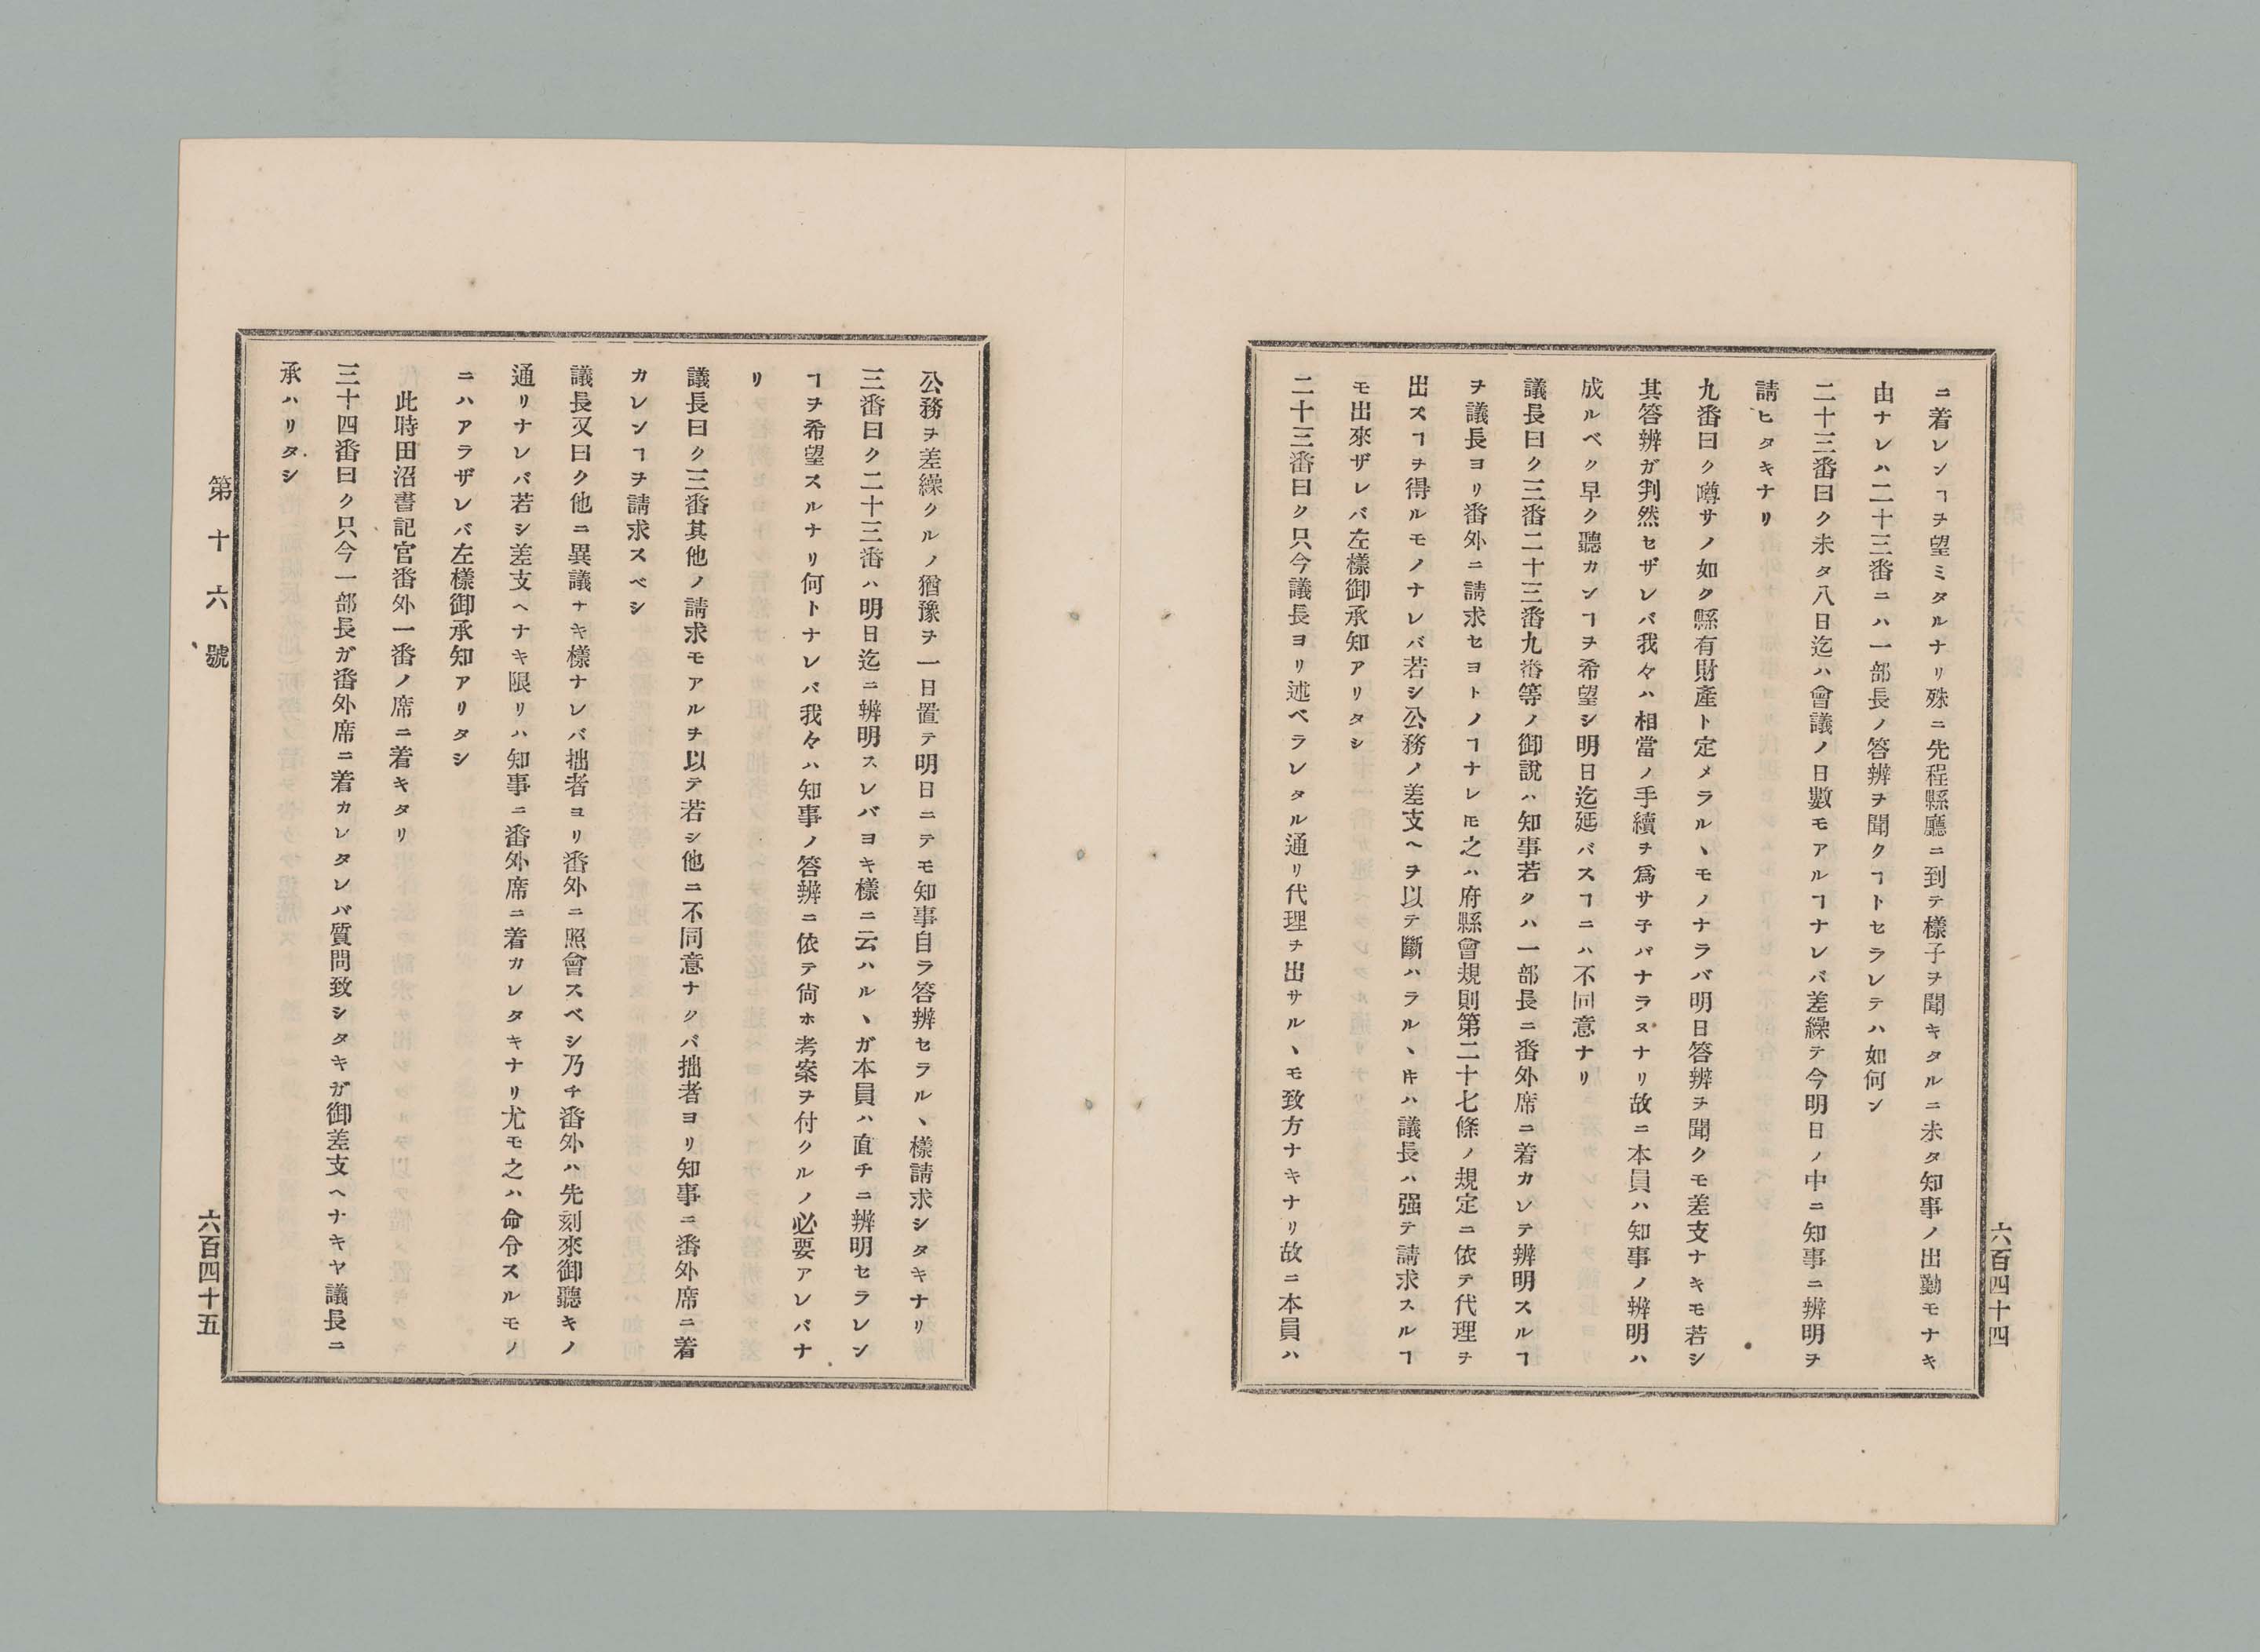 ニ着レンヿヲ望ミタルナリ殊ニ先程縣廳ニ到テ樣子ヲ聞キタルニ未タ知事ノ出勤モナキ
由ナレハ二十三番ニハ一部長ノ答辨ヲ聞クヿトセラレテハ如何ン
二十三番曰ク未タ八日迄ハ會議ノ日數モアルヿナレバ差繰テ今明日ノ中ニ知事ニ辨明ヲ
請ヒタキナリ
九番曰ク噂サノ如ク縣有財產ト定メラルヽモノナラバ明日答辨ヲ聞クモ差支ナキモ若シ
其答辨ガ判然セザレバ我々ハ相當ノ手續ヲ爲サ子バナラヌナリ故ニ本員ハ知事ノ辨明ハ
成ルベク早ク聽カンヿヲ希望シ明日迄延バスヿニハ不同意ナリ
議長曰ク三番二十三番九番等ノ御說ハ知事若クハ一部長ニ番外席ニ着カレテ辨明スルヿ
ヲ議長ヨリ番外ニ請求セヨトノヿナレ𪜈之ハ府縣會規則第二十七條ノ規定ニ依テ代理ヲ
出スヿヲ得ルモノナレバ若シ公務ノ差支ヘヲ以テ斷ハラルヽ片ハ議長ハ强テ請求スルヿ
モ出來ザレバ左樣御承知アリタシ
二十三番曰ク只今議長ヨリ述ベラレタル通リ代理ヲ出サルヽモ致方ナキナリ故ニ本員ハ
六百四十四
公務ヲ差繰クルノ猶豫ヲ一日置テ明日ニテモ知事自ラ答辨セラルヽ樣請求シタキナリ
三番曰ク二十三番ハ明日迄ニ辨明スレバヨキ樣ニ云ハルヽガ本員ハ直チニ辨明セラレン
ヿヲ希望スルナリ何トナレバ我々ハ知事ノ答辨ニ依テ尙ホ考案ヲ付クルノ必要アレバナ
リ
議長曰ク三番其他ノ請求モアルヲ以テ若シ他ニ不同意ナクバ拙者ヨリ知事ニ番外席ニ着
カレンヿヲ請求スベシ
議長又曰ク他ニ異議ナキ樣ナレバ拙者ヨリ番外ニ照會スベシ乃チ番外ハ先刻來御聽キノ
通リナレバ若シ差支ヘナキ限リハ知事ニ番外席ニ着カレタキナリ尤モ之ハ命令スルモノ
ニハアラザレバ左樣御承知アリタシ
此時田沼書記官番外一番ノ席ニ着キタリ
三十四番曰ク只今一部長ガ番外席ニ着カレタレバ質問致シタキガ御差支ヘナキヤ議長ニ
承ハリタシ
第十六號
六百四十五